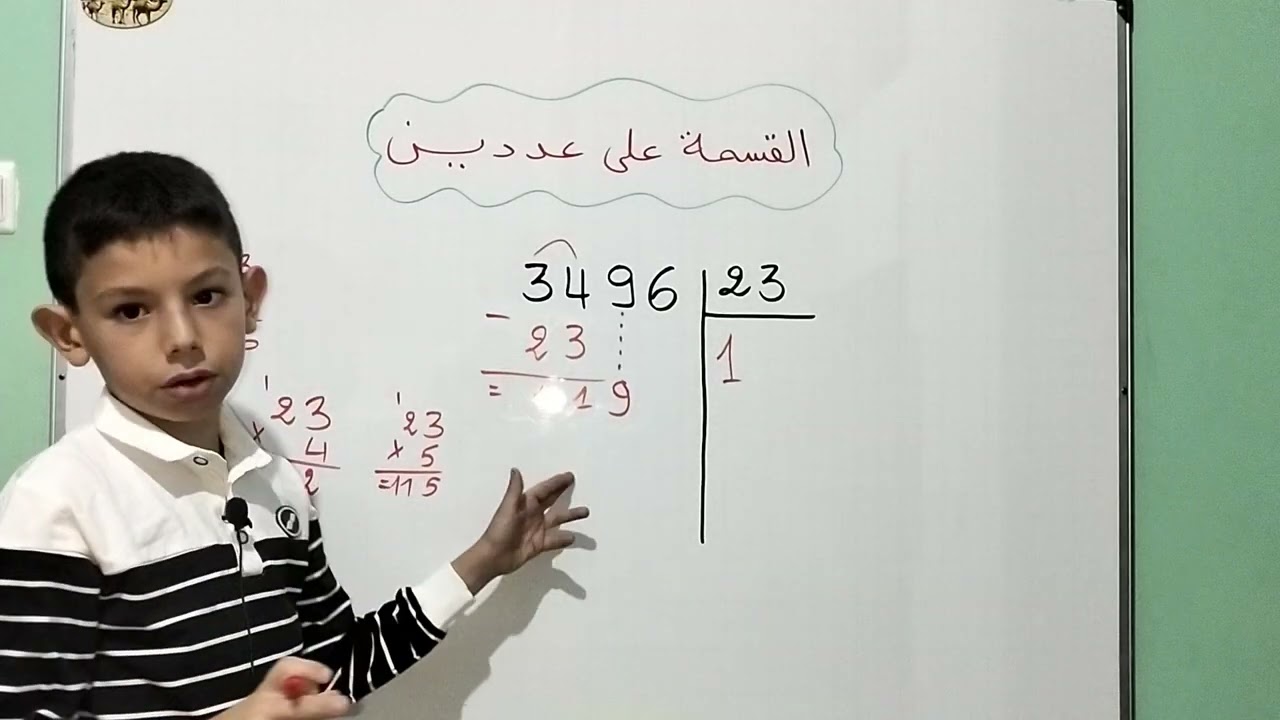 القسمة على عددين
3496 23
- 23 1
= 119
1
23
x 4
2
1
23
x 5
=115